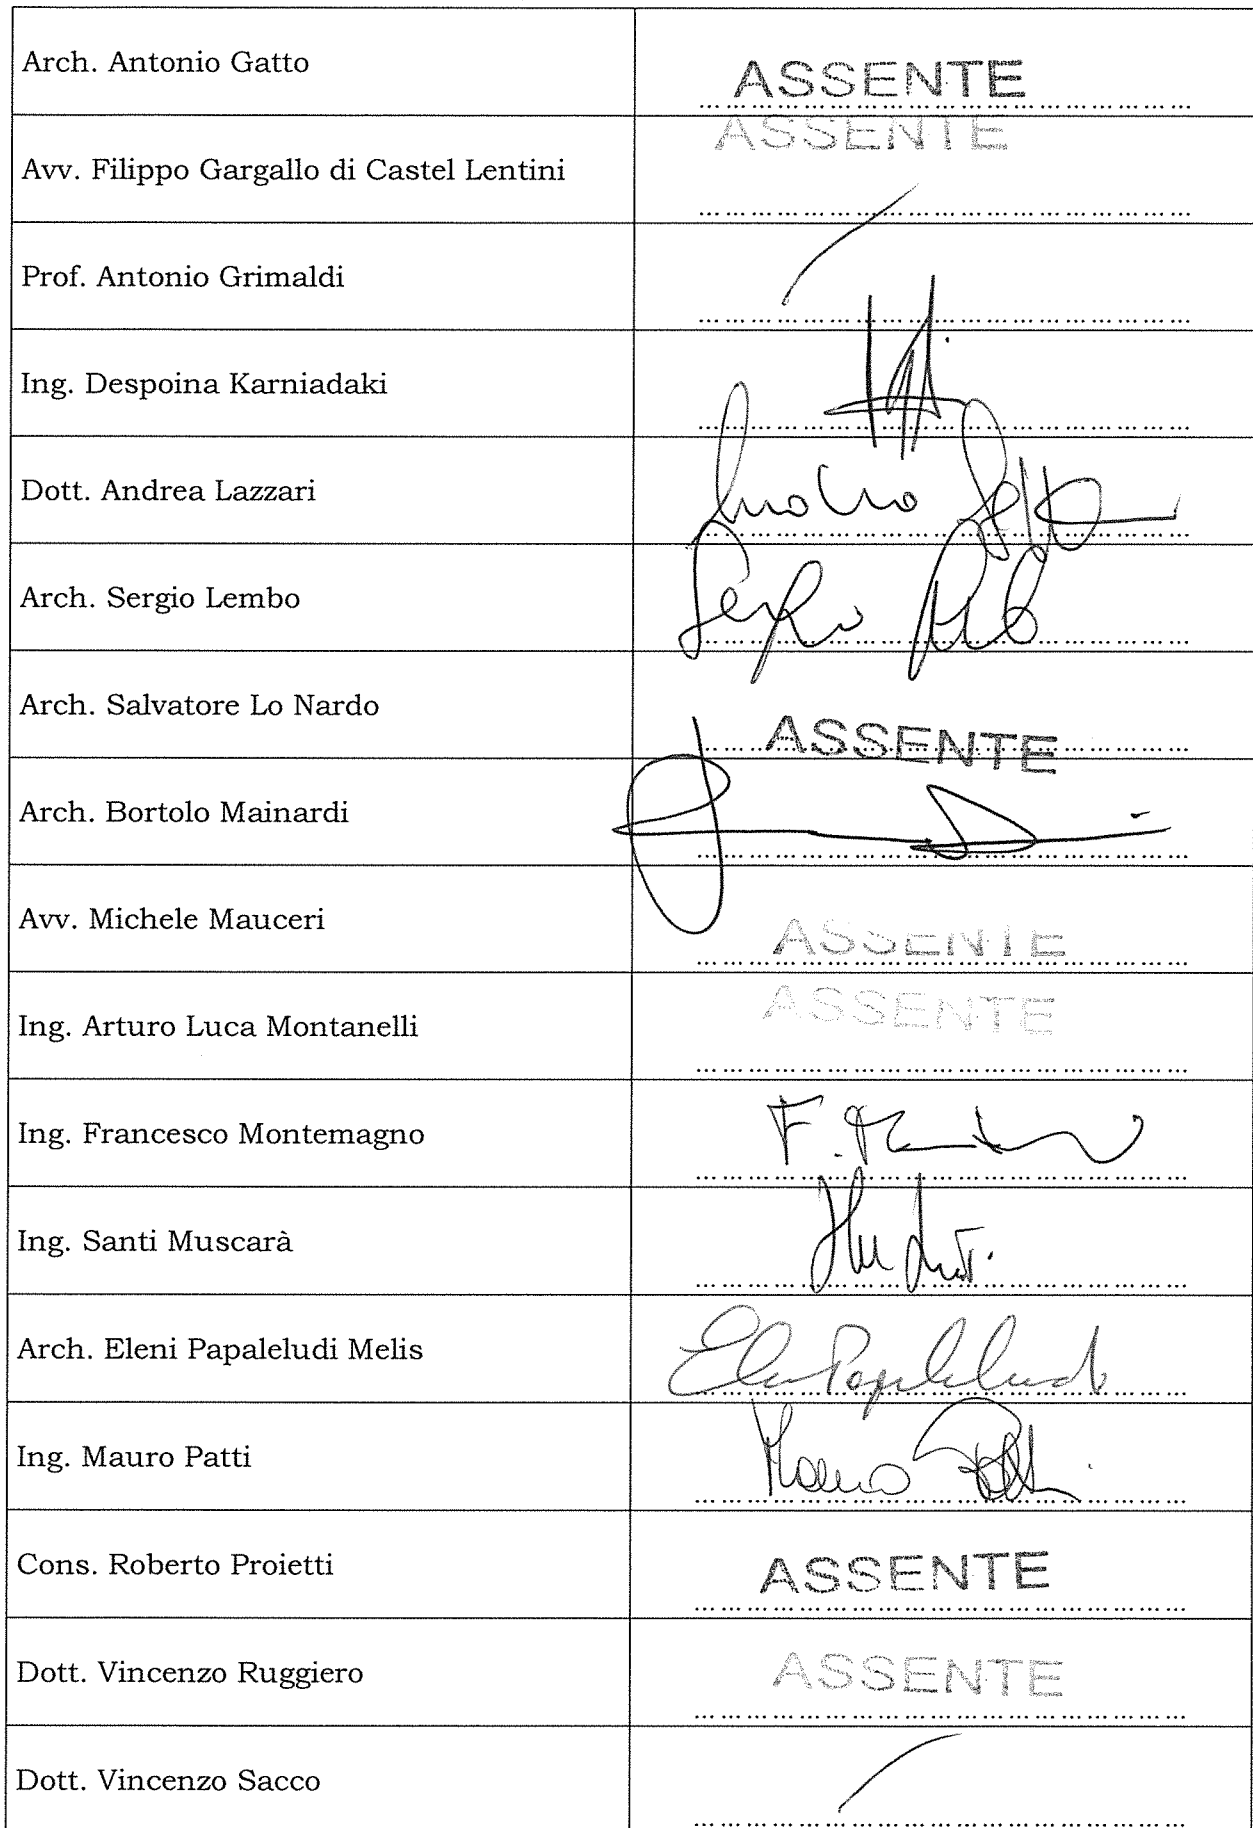 Arch. Antonio Gatto
ASSENTE
Avv. Filippo Gargallo di Castel Lentini
ASSENTE
Prof. Antonio Grimaldi
Ing. Despoina Karniadaki
Dott. Andrea Lazzari
Arch. Sergio Lembo
Sergio
Arch. Salvatore Lo Nardo
ASSENTE
Arch. Bortolo Mainardi
Avv. Michele Mauceri
ASSENTE
Ing. Arturo Luca Montanelli
ASSENTE
Ing. Francesco Montemagno
F.
Ing. Santi Muscarà
Arch. Eleni Papaleludi Melis
Ing. Mauro Patti
Mauro Patti
Cons. Roberto Proietti
ASSENTE
Dott. Vincenzo Ruggiero
ASSENTE
Dott. Vincenzo Sacco